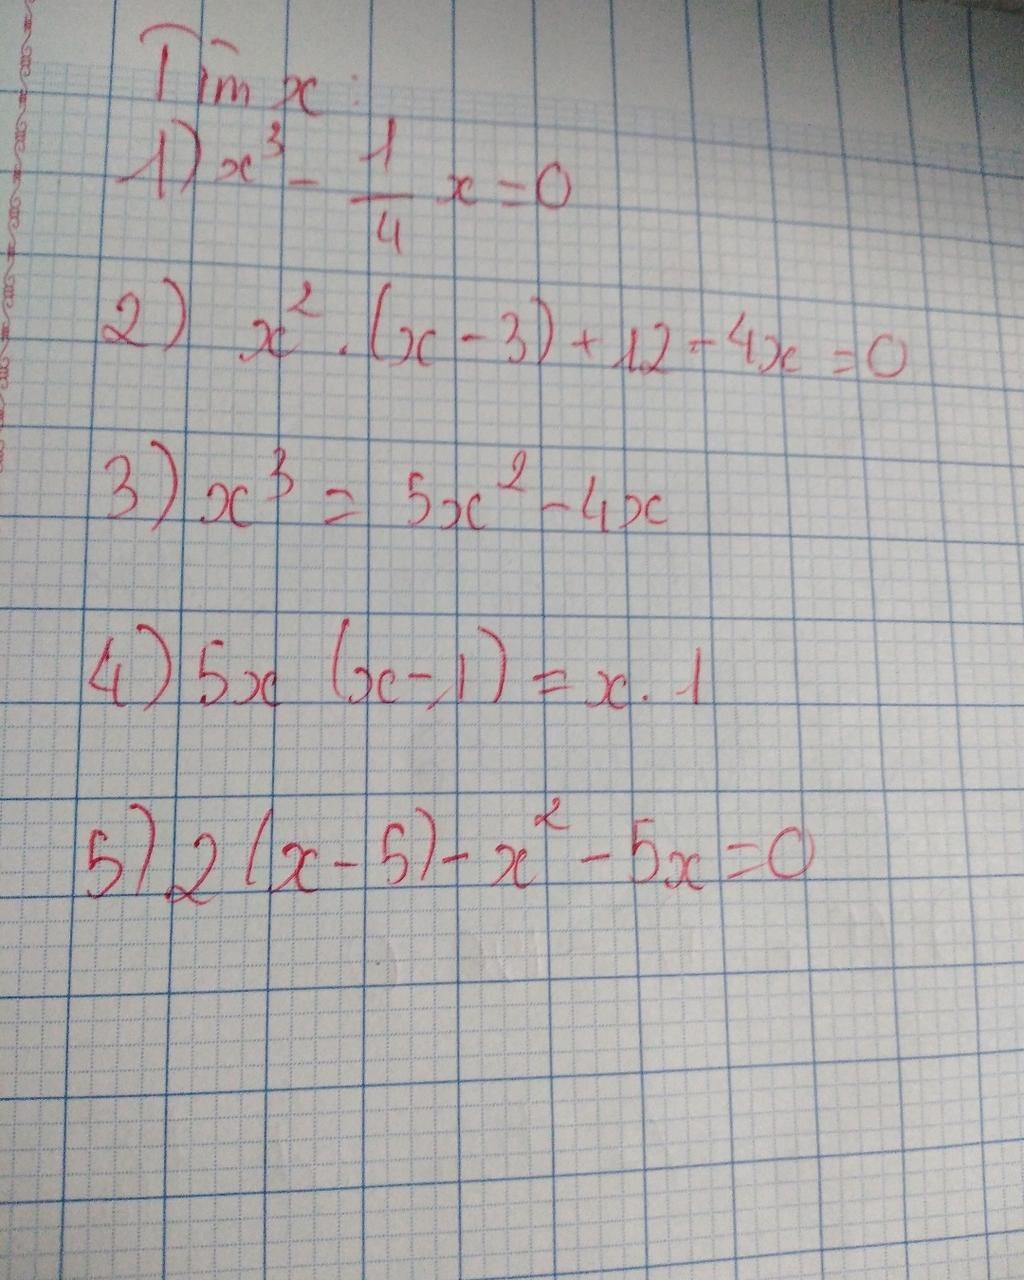 Tìm x:
1) x³ - 1/4 x = 0
2) x² . (x - 3) + 12 - 4x = 0
3) x³ = 5x² - 4x
4) 5x (x - 1) = x . 1
5) 2 (x - 5) - x² - 5x = 0